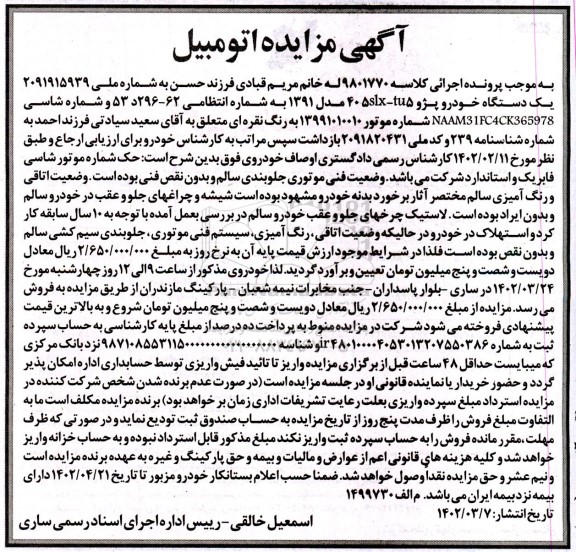 آگهی مزایده اتومبیل
به موجب پرونده اجرائی کلاسه ۹۸۰۱۷۷۰ له خانم مریم قبادی فرزند حسن به شماره ملی ۲۰۹۱۹۱۵۹۳۹
یک دستگاه خودرو پژو ۴۰۵slx-tu۵ مدل ۱۳۹۱ به شماره انتظامی ۶۲-۲۹۶د ۵۳ و شماره شاسی
NAAM31FC4CK365978 شماره موتور ۱۳۹۹۱۰۱۰۰۱۰ به رنگ نقره ای متعلق به آقای سعید سیادتی فرزند احمد به
شماره شناسنامه ۲۳۹ و کدملی ۲۰۹۱۸۲۰۴۳۱ بازداشت سپس مراتب به کارشناس خودرو برای ارزیابی ارجاع و طبق
نظر مورخ ۱۴۰۲/۰۲/۱۱ کارشناس رسمی دادگستری اوصاف خودروی فوق بدین شرح است: حک شماره موتور شاسی
فابریک و استاندارد شرکت می باشد. وضعیت فنی موتوری جلوبندی سالم و بدون نقص فنی بوده است. وضعیت اتاقی
و رنگ آمیزی سالم مختصر آثار برخورد بدنه خودرو مشهود بوده است شیشه و چراغهای جلو و عقب در خودرو سالم
و بدون ایراد بوده است. لاستیک چرخهای جلو و عقب خودرو سالم در بررسی بعمل آمده با توجه به ۱۰ سال سابقه کار
کرد و استهلاک در خودرو در حالیکه وضعیت اتاقی، رنگ آمیزی، سیستم فنی موتوری، جلوبندی سیم کشی سالم
و بدون نقص بوده است فلذا در شرایط موجود ارزش قیمت پایه آن به نرخ روز به مبلغ ۲/۶۵۰/۰۰۰/۰۰۰ ریال معادل
دویست و شصت و پنج میلیون تومان تعیین و برآورد گردید. لذا خودروی مذکور از ساعت ۹ الی ۱۲ روز چهارشنبه مورخ
۱۴۰۲/۰۳/۲۴ در ساری - بلوار پاسداران - جنب مخابرات نیمه شعبان - پارکینگ مازندران از طریق مزایده به فروش
می رسد. مزایده از مبلغ ۲/۶۵۰/۰۰۰/۰۰۰ ریال معادل دویست و شصت و پنج میلیون تومان شروع و به بالاترین قیمت
پیشنهادی فروخته می شود شرکت در مزایده منوط به پرداخت ده درصد از مبلغ پایه کارشناسی به حساب سپرده
نزد بانک مرکزی
که میبایست حداقل ۴۸ ساعت قبل از برگزاری مزایده واریز تا تائید فیش واریزی توسط حسابداری اداره امکان پذیر
گردد و حضور خریدار یا نماینده قانونی او در جلسه مزایده است (در صورت عدم برنده شدن شخص شرکت کننده در
مزایده استرداد مبلغ سپرده واریزی بعلت رعایت تشریفات اداری زمان بر خواهد بود) برنده مزایده مکلف است ما به
التفاوت مبلغ فروش را ظرف مدت پنج روز از تاریخ مزایده به حساب صندوق ثبت تودیع نماید و در صورتی که ظرف
مهلت، مقرر مانده فروش را به حساب سپرده ثبت واریز نکند مبلغ مذکور قابل استرداد نبوده و به حساب خزانه واریز
خواهد شد و کلیه هزینه های قانونی اعم از عوارض و مالیات و بیمه و حق پارکینگ و غیره به عهده برنده مزایده است
و نیم عشر و حق مزایده نقداً وصول خواهد شد. ضمناً حسب اعلام بستانکار خودرو مزبور تا تاریخ ۱۴۰۲/۰۴/۲۱ دارای
بیمه نزد بیمه ایران می باشد. م الف ۱۴۹۹۷۳۰
تاریخ انتشار: ۱۴۰۲/۰۳/۷
اسمعیل خالقی - رییس اداره اجرای اسناد رسمی ساری